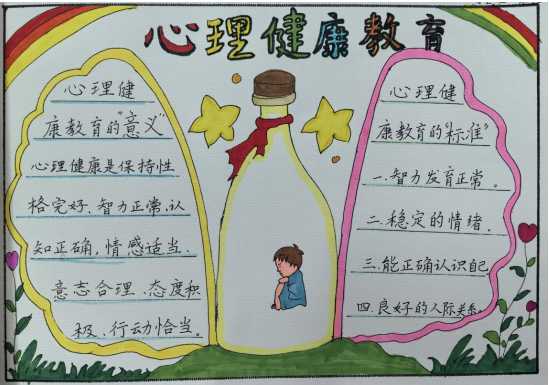 心理健康教育
心理健
康教育的"意义"
心理健康是保持性
格完好、智力正常、认
知正确,情感适当、
意志合理、态度积
极、行动恰当。
心理健
康教育的"标准"
一.智力发育正常。
二.稳定的情绪.
三.能正确认识自己
四.良好的人际关系